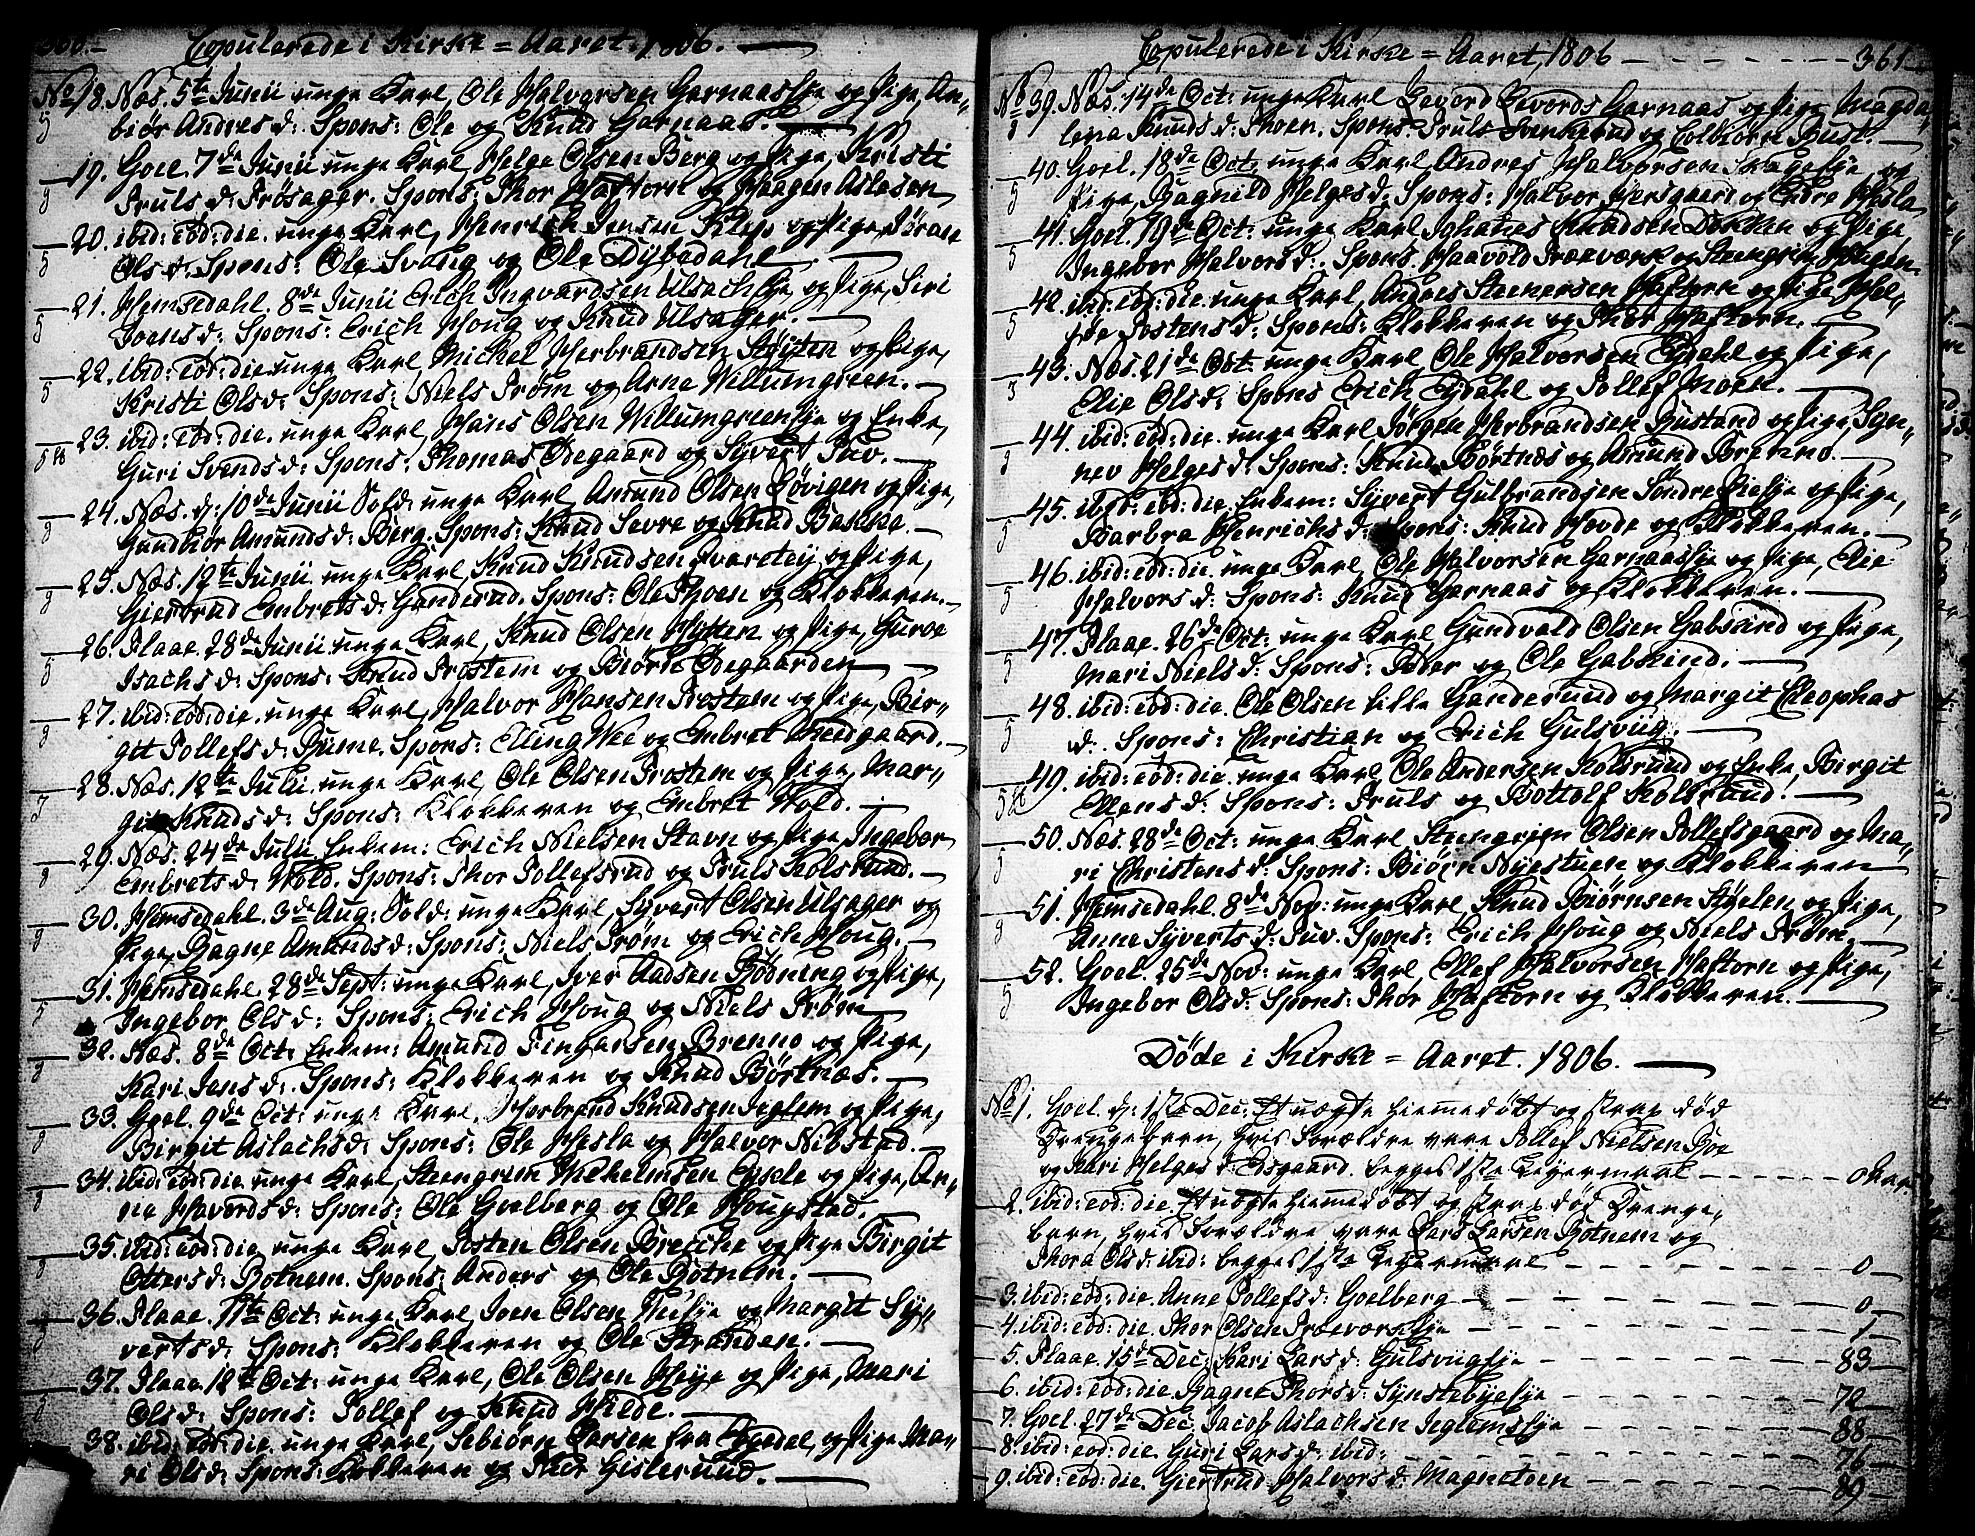 360.
Copulerede i Kirke = Aaret. 1806.
No 18. Næs. 5te Junii unge Karl, Ole Halvorsen Garnaas og Pige, An„
biør Andresd: Spons: Ole og Knud Garnaas.
19. Goel. 7de Junii unge Karl, Helge Olsen Berg og Pige, Kristi
Trulsd: Frøsager. Spons: Thor Haftorn og Haagen Aslesen
20. ibid: eod: die. unge Karl, Henrich Jensen Klep og Pige, Jøran
Olsd: Spons: Ole Svang og Ole Dybedahl
21. Hemsedahl. 8de Junii Erich Ingvardsen Ulsach og Pige, Siri
Joensd: Spons: Erich Houg og Knud Ulsager.
22. ibid: eod: die. unge Karl, Michel Herbrandsen Støyten og Pige,
Kristi Olsd: Spons: Niels Trøm og Arne Willumgreen.
23. ibid: eod: die. unge Karl, Hans Olsen Willumgreen og Enke,
Guri Svendsd: Spons: Thomas Ødegaard og Syvert Tuv.
24. Næs. d: 10de Junii Sold: unge Karl, Amund Olsen Løvigen og Pige,
Gundbiør Amundsd: Berg. Spons: Knud Sevre og Knud Bakke.
25. Næs. 12te Junii unge Karl, Knud Knudsen og Pige,
Giertrud Embretsd: Gunderud. Spons: Ole Thoen og Klokkeren.
26. Flaae. 28de Junii unge Karl, Knud Olsen Hytten og Pige, Guroe
Isachsd: Spons: Knud Trostem og Biørn Ødegaarden
27. ibid: eod: die. unge Karl, Halvor Hansen Trostem og Pige, Bir„
git Tollefsd: Rume. Spons: Elling Wee og Embret
28. Næs. 12te Julii unge Karl, Ole Olsen Trostem og Pige, Mar„
git Knudsd: Spons: Klokkeren og Embret Wold.
29. Næs. 24de Julii Enkem: Erich Nielsen Stavn og Pige, Ingebor
Embretsd: Wold. Spons: Thor Tollefsrud og Truls Kolsrud.
30. Hemsedahl. 3de Aug: Sold: unge Karl, Syvert Olsen Ulsager og
Pige, Ragne Amundsd: Spons: Niels Trøm og Erich Houg.
31. Hemsedahl. 28de Sept: unge Karl, Iver Aadsen Rødning og Pige,
Ingebor Olsd: Spons: Erich Houg og Niels Trøm
32. Næs. 8de Oct: Enkem: Amund Fingarsen Brenno og Pige,
Kari Jensd: Spons: Klokkeren og Knud Børtnæs.
33. Goel. 9de Oct: unge Karl, Herbrand Knudsen Jeglem og Pige,
Birgit Aslachsd: Spons: Ole Hesla og Halvor Nibstad.
34. ibid: eod: die. unge Karl, Steengrim Wilhelmsen og Pige, An„
ne Havordsd: Spons: Ole Goelberg og Ole Hougstad.
35. ibid: eod: die. unge Karl, Josten Olsen Brecche og Pige Birgit
Ottersd: Botnem. Spons: Anders og Ole Botnem.
36. Flaae. 11te Oct: unge Karl, Iven Olsen og Margit Sy„
vertsd: Spons: Klokkeren og Ole Stranden.
37. Flaae 12te Oct: unge Karl, Ole Olsen Heye og Pige, Mari
Olsd: Spons: Tollef og Knud Hilde.
38. ibid: eod: die. unge Karl, Sebiørn Larsen fra og Pige Ma„
ri Olsd: Spons: Klokkeren og Thor Gislerund.
Copulerede i Kirke = Aaret, 1806 361
No 39. Næs. 14de Oct: unge Karl Levord Levords Garnaas og Pige Magda„
lena Knudsd: Thoen. Spons: Truls Svenkerud og Colbiørn Rust.
40. Goel. 18de Oct: unge Karl Andres Halvorsen og
Pige, Ragnild Helgesd: Spons: Halvor Hersgaard og Endre Hesla
41. Goel. 19de Oct: unge Karl Johanes Knudsen Dokken og Pige,
Ingebor Halvorsd: Spons: Haavold Træværk og Steengrim Hougen.
42. ibid: eod: die. unge Karl, Andres Steenersen Haftorn og Pige Hel„
ge Jostensd: Spons: Klokkeren og Thor Haftorn.
43. Næs. 21de Oct: unge Karl, Ole Halvorsen Eydahl og Pige,
Elie Olsd: Spons Erich Eydahl og Tollef Moen.
44. ibid: eod: die. unge Karl Jørgen Herbrandsen Rustand og Pige, Syn„
nev Helgesd: Spons: Knud Børtnæs og Amund Brenno.
45. ibid: eod: die. Enkem: Syvert Gulbrandsen Søndre og Pige,
Barbra Henrichsd: Spons: Knud Hovde og Klokkeren.
46. ibid: eod: die. unge Karl, Ole Halvorsen Garnaas og Pige, Elie
Halvorsd: Spons: Knud Garnaas og Klokkeren.
47. Flaae. 26de Oct: unge Karl, Gundvald Olsen Gabsund og Pige,
Mari Nielsd: Spons: Peder og Ole Gabsund.
48. ibid: eod: die. Ole Olsen lille Gunderuud og Margit Cleophas
d: Spons: Christian og Erich Gulsviig.
49. ibid: eod: die. unge Karl, Ole Andersen Kolsruud og Enke, Birgit
Ellensd: Spons: Truls og Bottolf Kolsruud.
50. Næs. 28de Oct: unge Karl Steengrim Olsen Tollefsgaard og Ma„
ri Christensd: Spons: Biørn Nyestuen og Klokkeren
51. Hemsedahl. 8de Nov: unge Karl, Knud Biørnsen Støelen og Pige,
Anne Syvertsd: Tuv. Spons: Erich Houg og Niels Trøm
52. Goel. 25de Nov: unge Karl, Ellef Halvorsen Haftorn og Pige,
Ingebor Olsd: Spons: Thor Haftorn og Klokkeren.
Døde i Kirke = Aaret. 1806.
No 1. Goel. d: 1ste Dec: Et uægte hiemedøbt og strax død
Drengebarn, hvis Forældre vare Tollef Nielsen Roe
og Kari Helgesd: Eisgaard. begges 1ste Leyermaal 0 Aar.
2. ibid: eod: die. Et uægte hiemedøbt og strax død Drenge„
barn, hvis Forældre vare Lars Larsen Botnem og
Thora Olsd: ibid: begges 1ste Leyermaal 0
3. ibid: eod: die. Anne Tollefsd: Goelberg 0
4. ibid: eod: die. Thor Olsen 1
5. Flaae. 15de Dec: Kari Larsd: Gulsviig 83
6. ibid: eod: die. Ragne Thorsd: 72
7. Goel. 27de Dec: Jacob Aslachsen 88
8. ibid: eod: die. Guri Larsd: ibid: 76
9. ibid: eod: die. Giertrud Halvorsd: Magnetoen 89